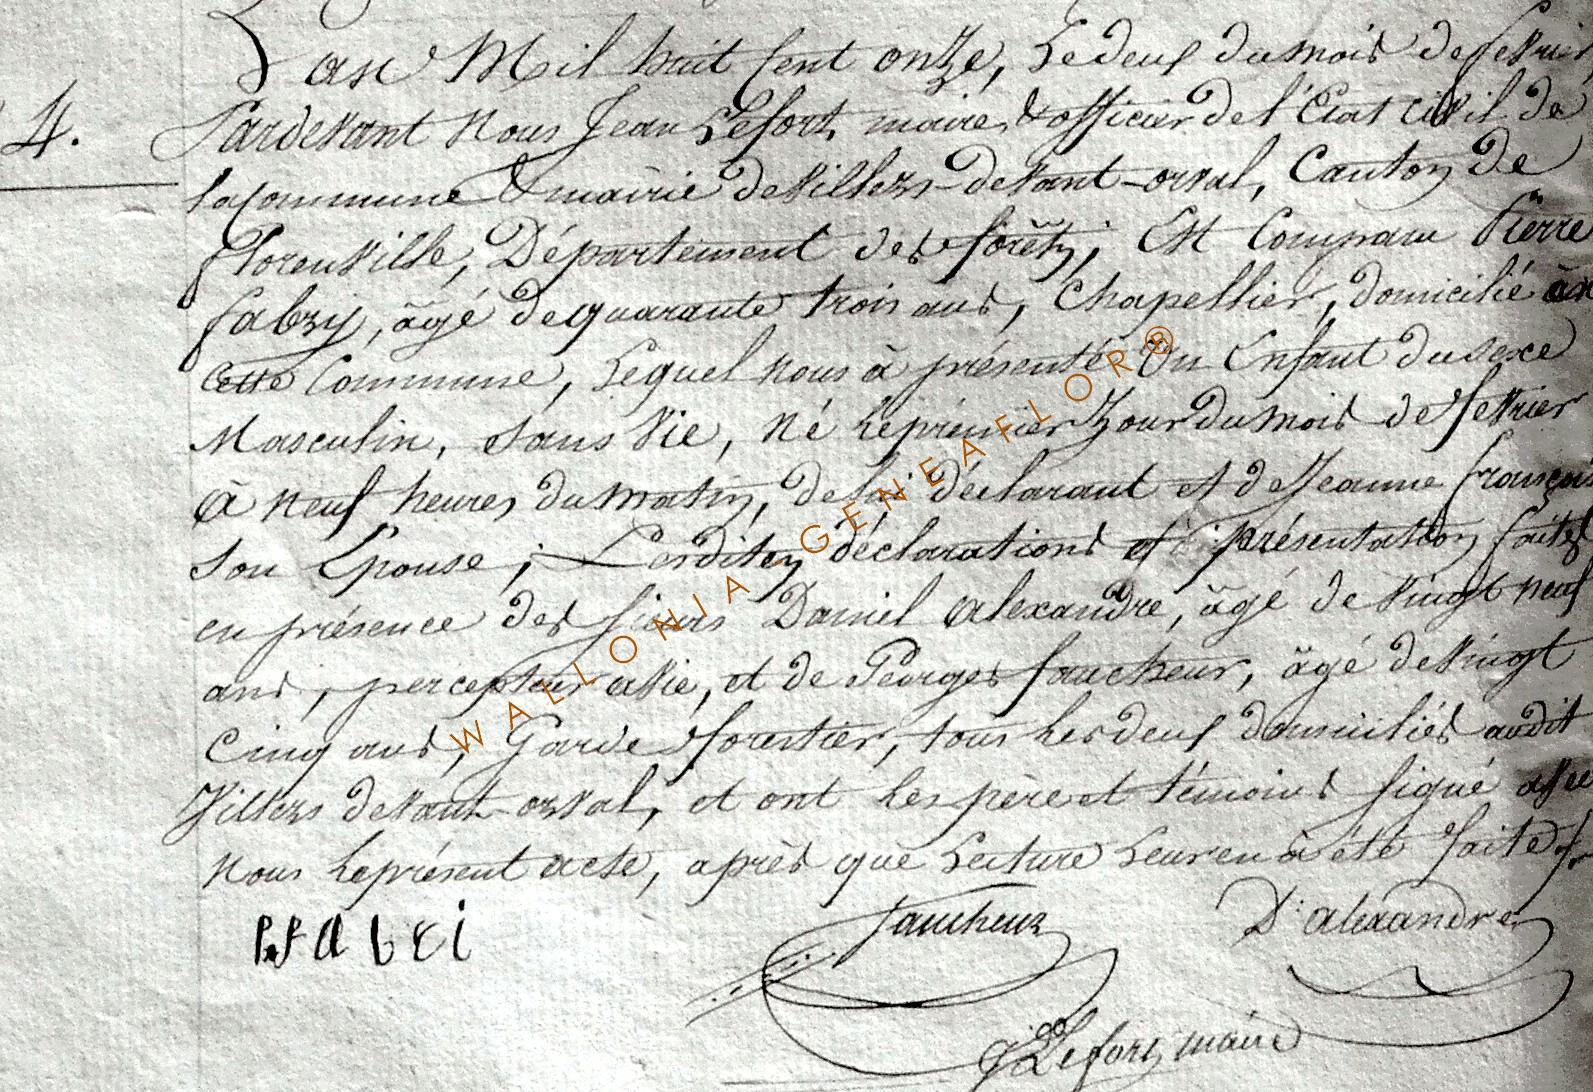 L'an Mil huit Cent onze, Le deux du mois de fevrier
4. Pardevant Nous Jean Lefort, maire, & officier de l'Etat Civil de
la Commune & mairie de Villers-devant-orval, Canton de
Florenville, Département des forêts, Est Comparu Pierre
fabry, âgé de quarante trois ans, Chapellier, domicilié en
Cette Commune, Lequel nous à présenté Un Enfant du sexe
Masculin, sans Vie, Né le prémier Jour du mois de fevrier
à neuf heures du matin, de lui déclarant et de Jeanne françois
son Epouse; Lesdites déclarations et présentation faites
en présence des sieurs Daniel alexandre, âgé de Vingt neuf
ans, percepteur à Vie, et de Georges faucheur, âgé de Vingt
Cinq ans, Garde forestier, tous les deux domiciliés audit
Villers devant orval, et ont les père et témoins signé avec
Nous le présent acte, après que Lecture Leur en à été faite
P. FAbEi faucheur D: alexandre
J Lefort, maire
WALLONIA-GENEAFLOR®